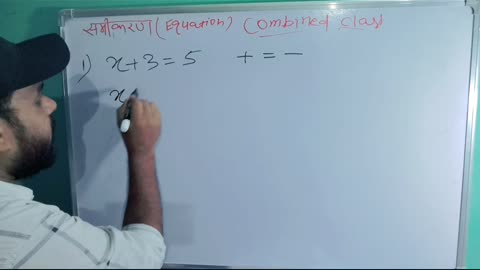 समीकरण (Equation) Combined Class
1) x+3=5 + = -
x